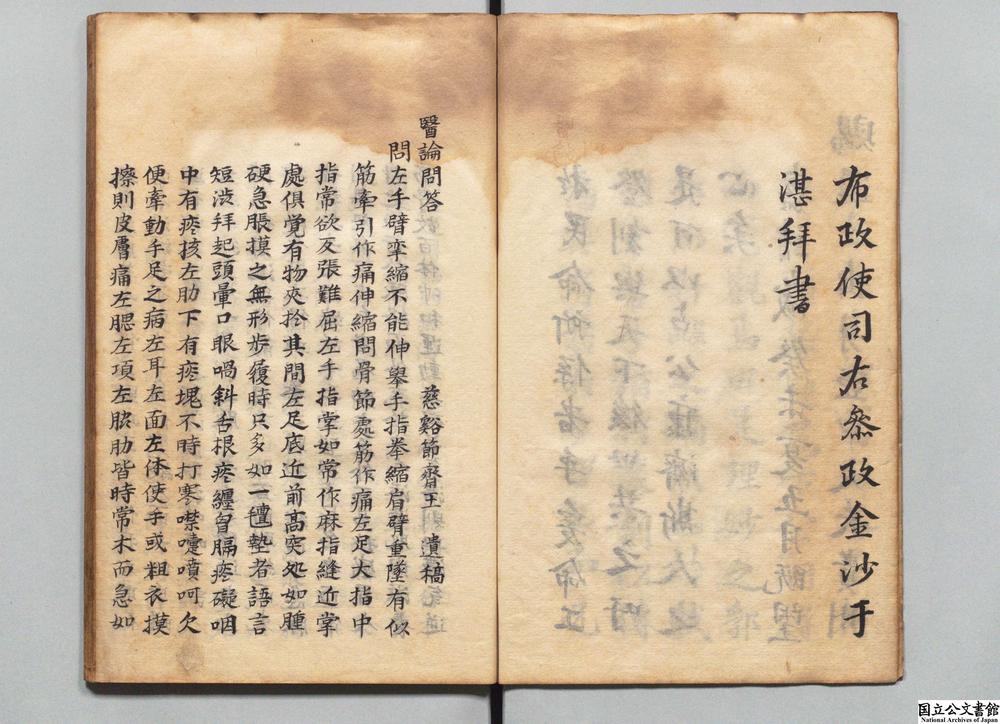 布政使司右叅政金沙于
湛拜書
醫論問答
慈谿節齋王 遺稿
問左手臂攣縮不能伸舉手指拳縮肩臂重墜有似
筋牽引作痛伸縮問骨節處筋作痛左足大指中
指常欲反張難屈左手指掌如常作麻指縫近掌
處俱覺有物夾扵其間左足底近前高突処如腫
硬急脹摸之無形步履時只多如一氊墊者語言
短澁拜起頭暈口眼喎斜舌根疙纏胷膈疙礙咽
中有疙核左肋下有疙塊不時打寒噤嚏噴呵欠
便牽動手足之病左耳左面左体使手或粗衣摸
擦則皮膚痛左腮左項左脇肋皆時常木而急如
国立公文書館
National Archives of Japan